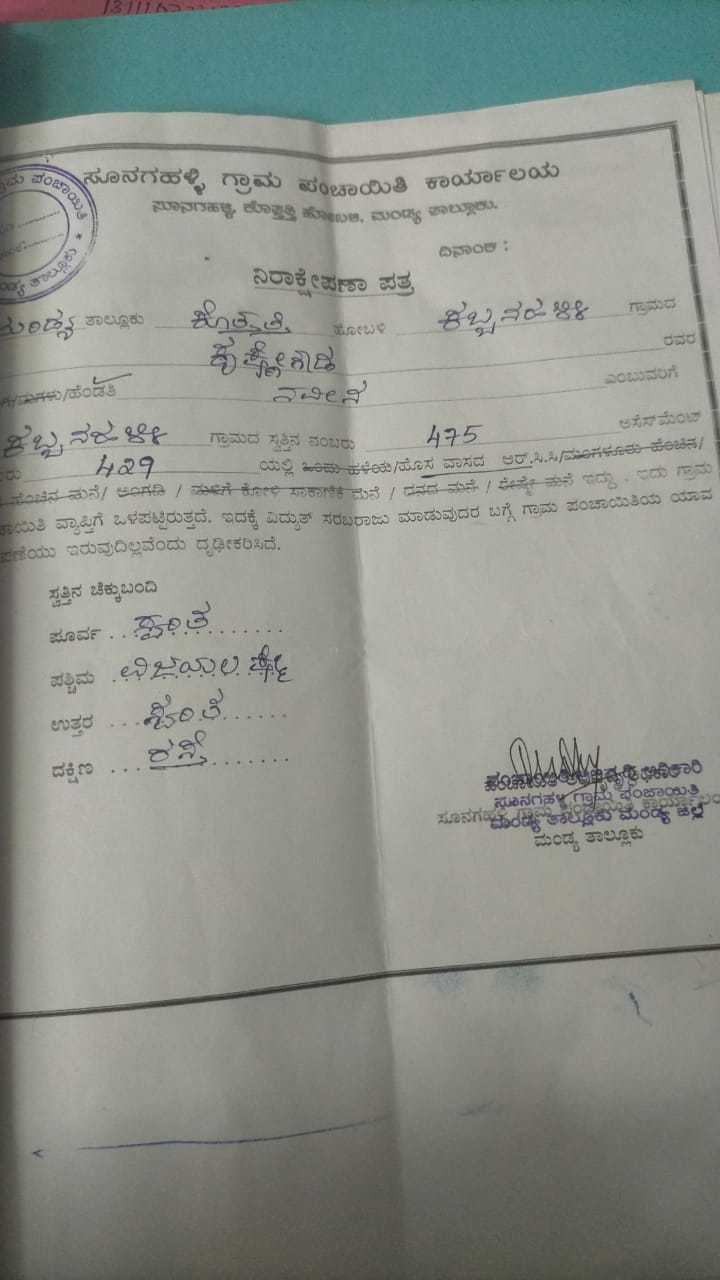 ಗ್ರಾಮ ಪಂಚಾಯಿತಿ
ಮಂಡ್ಯ ತಾಲ್ಲೂಕು *
ಸೂನಗಹಳ್ಳಿ ಗ್ರಾಮ ಪಂಚಾಯಿತಿ ಕಾರ್ಯಾಲಯ
ಸೂನಗಹಳ್ಳಿ, ಕೊತ್ತತ್ತಿ ಹೋಬಳಿ, ಮಂಡ್ಯ ತಾಲ್ಲೂಕು.
ದಿನಾಂಕ :
ನಿರಾಕ್ಷೇಪಣಾ ಪತ್ರ
ಮಂಡ್ಯ ತಾಲ್ಲೂಕು ಕೊತ್ತತ್ತಿ ಹೋಬಳಿ ಕಬ್ಬನಹಳ್ಳಿ ಗ್ರಾಮದ
ಕೃಷ್ಣೇಗೌಡ ರವರ
/ಮಗಳು/ಹೆಂಡತಿ ನವೀನ ಎಂಬುವರಿಗೆ
ಕಬ್ಬನಹಳ್ಳಿ ಗ್ರಾಮದ ಸ್ವತ್ತಿನ ನಂಬರು 475 ಅಸೆಸ್‌ಮೆಂಟ್
429 ಯಲ್ಲಿ ಒಂದು ಹಳೆಯ/ಹೊಸ ವಾಸದ ಆರ್.ಸಿ.ಸಿ/ಮಂಗಳೂರು ಹೆಂಚಿನ/
ಹೆಂಚಿನ ಮನೆ/ ಅಂಗಡಿ / ಮಳಿಗೆ ಕೋಳಿ ಸಾಕಾಣಿಕೆ ಮನೆ / ದನದ ಮನೆ / ರೇಷ್ಮೇ ಮನೆ ಇದ್ದು, ಇದು ಗ್ರಾಮ
ಪಂಚಾಯಿತಿ ವ್ಯಾಪ್ತಿಗೆ ಒಳಪಟ್ಟಿರುತ್ತದೆ. ಇದಕ್ಕೆ ವಿದ್ಯುತ್ ಸರಬರಾಜು ಮಾಡುವುದರ ಬಗ್ಗೆ ಗ್ರಾಮ ಪಂಚಾಯಿತಿಯ ಯಾವ
ಇರುವುದಿಲ್ಲವೆಂದು ದೃಢೀಕರಿಸಿದೆ.
ಸ್ವತ್ತಿನ ಚೆಕ್ಕುಬಂದಿ
ಪೂರ್ವ . . ಸ್ವಂತ . . . . . . . .
ಪಶ್ಚಿಮ ವಿಜಯಲಕ್ಷ್ಮೀ
ಉತ್ತರ . . . ಸ್ವಂತ . . . . . .
ದಕ್ಷಿಣ . . . ರಸ್ತೆ . . . . . . .
ಪಂಚಾಯಿತಿ ಅಭಿವೃದ್ಧಿ ಅಧಿಕಾರಿ
ಸೂನಗಹಳ್ಳಿ ಗ್ರಾಮ ಪಂಚಾಯಿತಿ
ಸೂನಗಹಳ್ಳಿ ಗ್ರಾಮ ಪಂಚಾಯಿತಿ ಕಾರ್ಯಾಲಯ
ಮಂಡ್ಯ ತಾಲ್ಲೂಕು ಮಂಡ್ಯ ಜಿಲ್ಲೆ
ಮಂಡ್ಯ ತಾಲ್ಲೂಕು